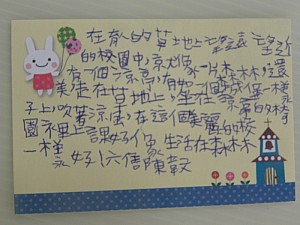 在教的草地上望望近
的校園中,就像一片森林,還
有一個涼亭,有如一個城堡一樣
美座在草地上,坐在涼亭的椅
子上吹著涼風,在這個美麗的校
園裡上課好像生活在森林
一樣好!六信陳